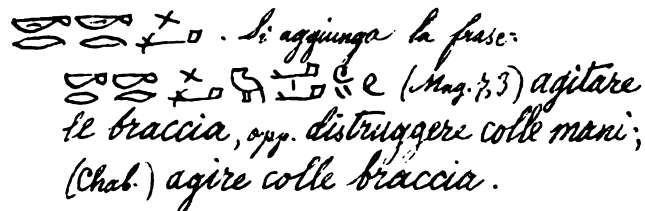 . Si aggiunga la frase:
(Mag. 7,3) agitare
le braccia, opp. distruggere colle mani;
(Chab.) agire colle braccia.